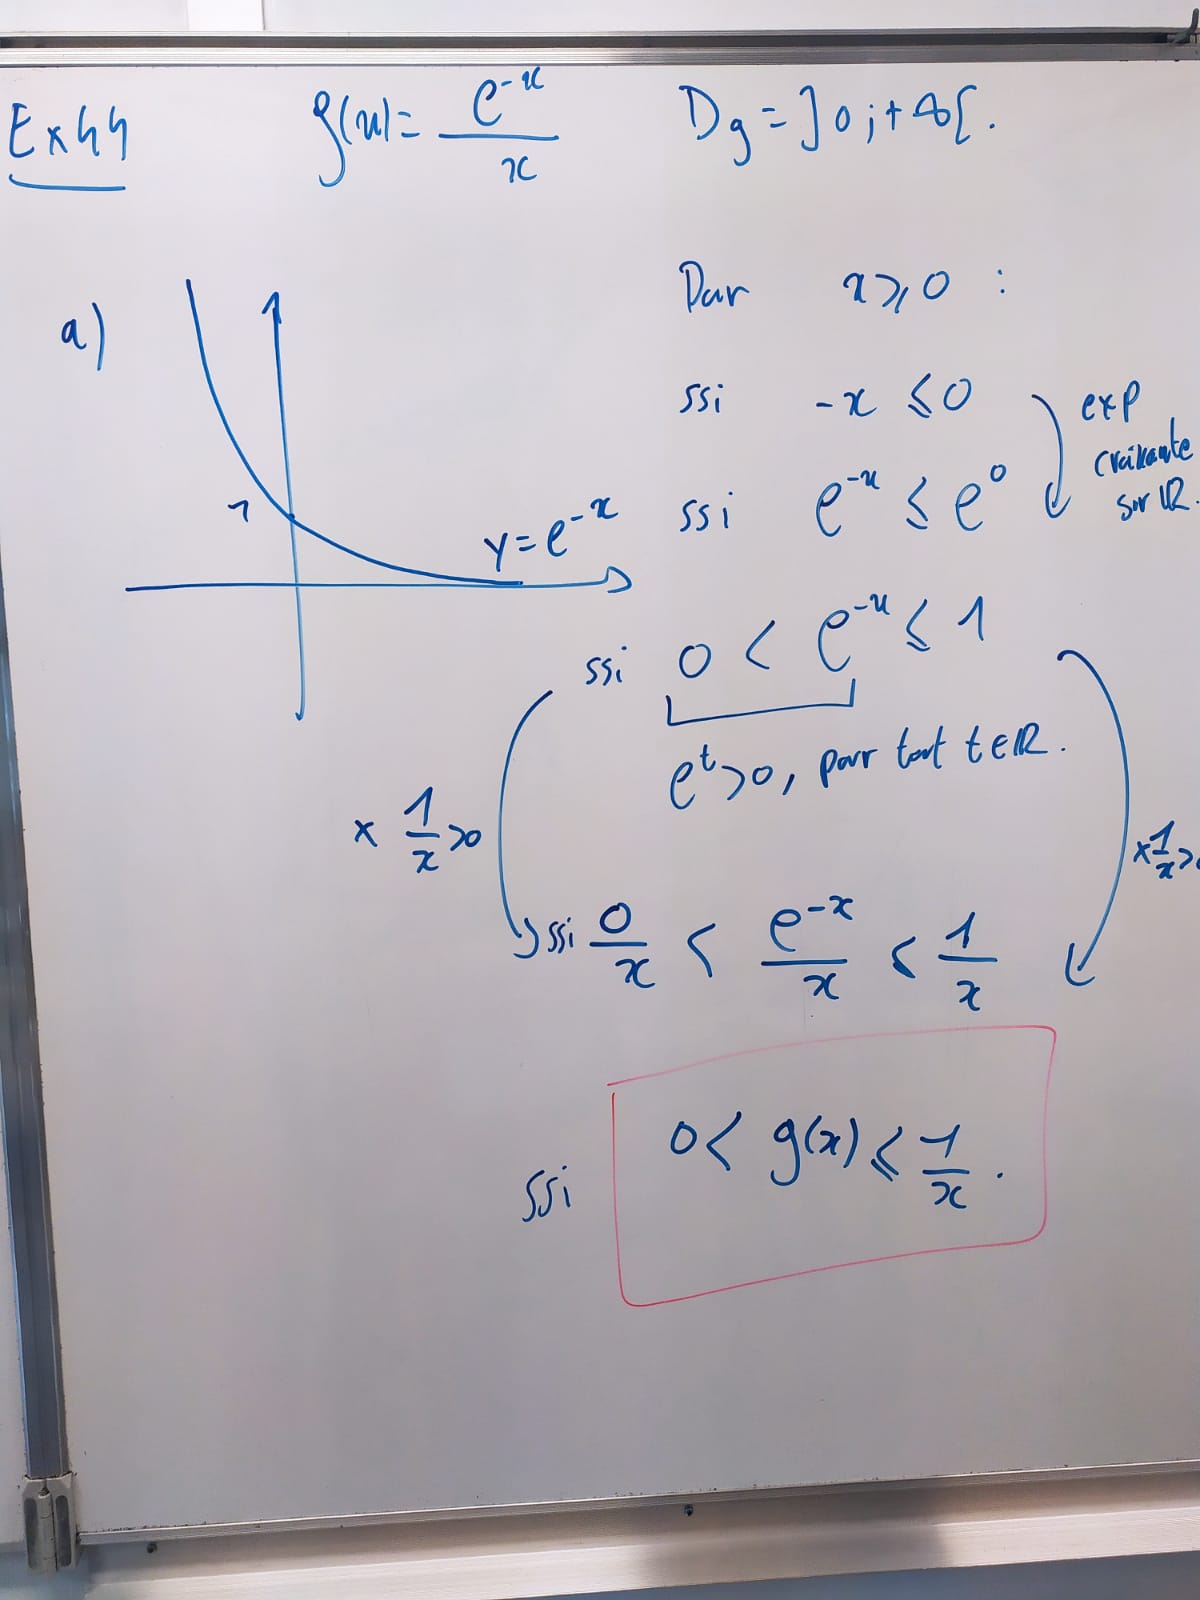 Ex 44 g(x) = e^{-x} / x D_g = ]0 ; +∞[.
a)
1
y = e^{-x}
Pour x ⩾ 0 :
ssi -x ⩽ 0
exp croissante sur ℝ.
ssi e^{-x} ⩽ e^0
ssi 0 < e^{-x} ⩽ 1
e^t > 0, pour tout t ∈ ℝ.
× 1/x > 0
× 1/x > 0
ssi 0/x < e^{-x}/x ⩽ 1/x
ssi 0 < g(x) ⩽ 1/x .